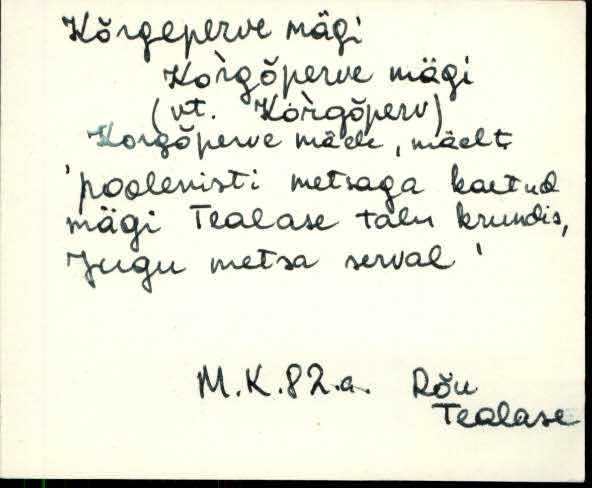 Kõrgeperve mägi
Kor̀gõperve mägi
(vt. Kor̀gõperv)
Korgõperve mäele, mäelt
'poolenisti metsaga kaetud
mägi Tealase talu krundis,
Jugu metsa serval'
M.K.82.a. Rõu
Tealase